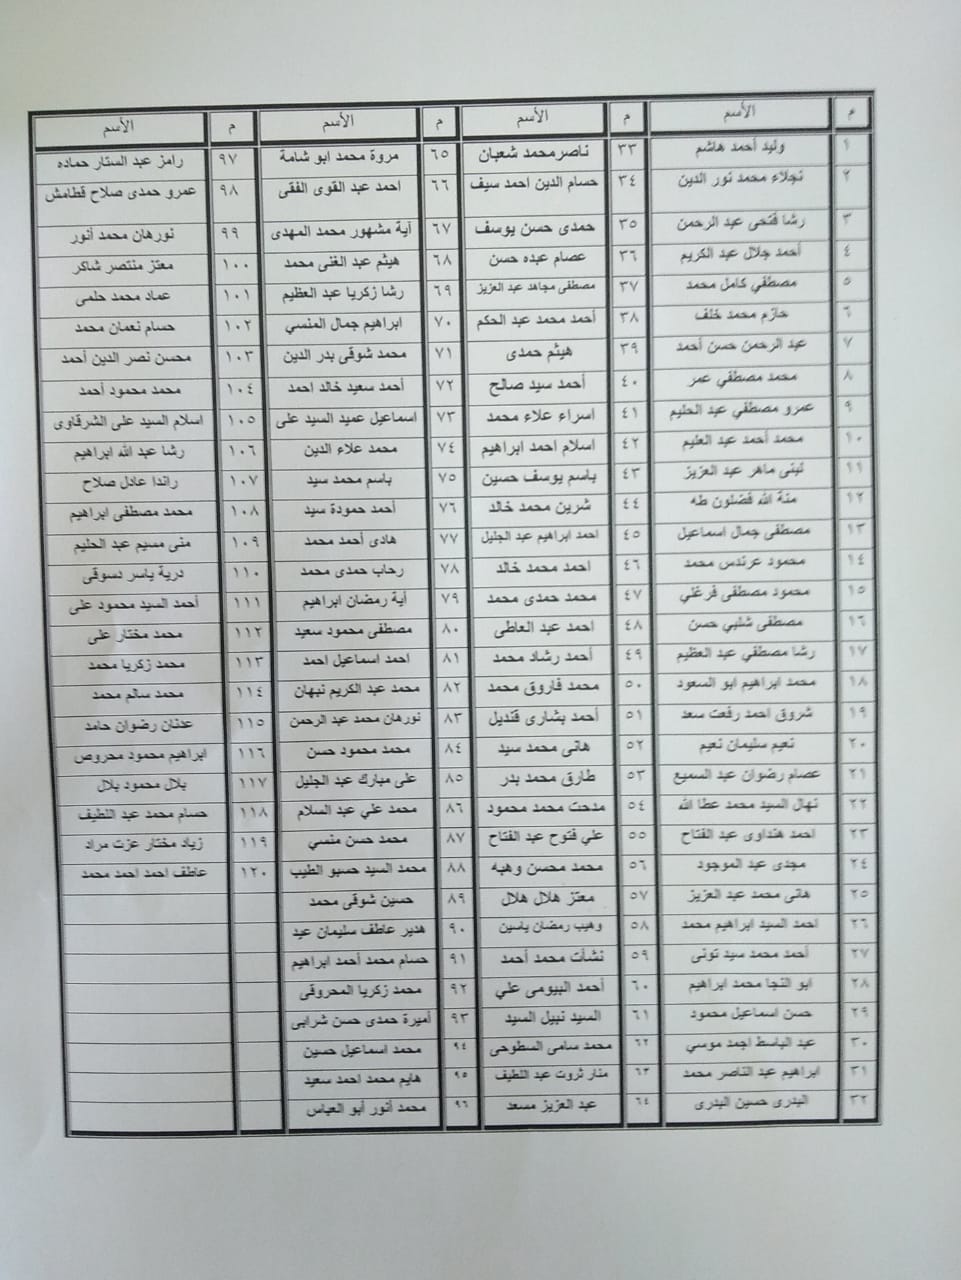 م الأسم م الأسم م الأسم م الأسم
١ وليد أحمد هاشم ٣٣ ناصر محمد شعبان ٦٥ مروة محمد ابو شامة ٩٧ رامز عبد الستار حماده
٢ نجلاء محمد نور الدين ٣٤ حسام الدين احمد سيف ٦٦ احمد عبد القوى الفقى ٩٨ عمرو حمدى صلاح قطامش
٣ رشا فتحى عبد الرحمن ٣٥ حمدى حسن يوسف ٦٧ آية مشهور محمد المهدى ٩٩ نورهان محمد أنور
٤ أحمد جلال عبد الكريم ٣٦ عصام عبده حسن ٦٨ هيثم عبد الغنى محمد ١٠٠ معتز منتصر شاكر
٥ مصطفي كامل محمد ٣٧ مصطفى مجاهد عبد العزيز ٦٩ رشا زكريا عبد العظيم ١٠١ عماد محمد حلمى
٦ حازم محمد خلف ٣٨ أحمد محمد عبد الحكم ٧٠ ابراهيم جمال المنسي ١٠٢ حسام نعمان محمد
٧ عبد الرحمن حسن أحمد ٣٩ هيثم حمدى ٧١ محمد شوقى بدر الدين ١٠٣ محسن نصر الدين أحمد
٨ محمد مصطفي عمر ٤٠ أحمد سيد صالح ٧٢ أحمد سعيد خالد احمد ١٠٤ محمد محمود أحمد
٩ عمرو مصطفي عبد الحليم ٤١ اسراء علاء محمد ٧٣ اسماعيل عميد السيد على ١٠٥ اسلام السيد على الشرقاوى
١٠ محمد أحمد عبد العليم ٤٢ اسلام احمد ابراهيم ٧٤ محمد علاء الدين ١٠٦ رشا عبد الله ابراهيم
١١ لبنى ماهر عبد العزيز ٤٣ باسم يوسف حسين ٧٥ باسم محمد سيد ١٠٧ راندا عادل صلاح
١٢ منة الله فضلون طه ٤٤ شرين محمد خالد ٧٦ أحمد حمودة سيد ١٠٨ محمد مصطفى ابراهيم
١٣ مصطفى جمال اسماعيل ٤٥ احمد ابراهيم عبد الجليل ٧٧ هادى أحمد محمد ١٠٩ منى مسيم عبد الحليم
١٤ محمود عرندس محمد ٤٦ احمد محمد خالد ٧٨ رحاب حمدى محمد ١١٠ درية ياسر دسوقى
١٥ محمود مصطفى فرغلي ٤٧ محمد حمدى محمد ٧٩ أية رمضان ابراهيم ١١١ أحمد السيد محمود على
١٦ مصطفى شلبي حسن ٤٨ احمد عبد العاطى ٨٠ مصطفى محمود سعيد ١١٢ محمد مختار على
١٧ رشا مصطفي عبد العظيم ٤٩ أحمد رشاد محمد ٨١ احمد اسماعيل احمد ١١٣ محمد زكريا محمد
١٨ محمد ابراهيم ابو السعود ٥٠ محمد فاروق محمد ٨٢ محمد عبد الكريم نبهان ١١٤ محمد سالم محمد
١٩ شروق احمد رفعت سعد ٥١ أحمد بشارى قنديل ٨٣ نورهان محمد عبد الرحمن ١١٥ عدنان رضوان حامد
٢٠ نعيم سليمان نعيم ٥٢ هانى محمد سيد ٨٤ محمد محمود حسن ١١٦ ابراهيم محمود محروص
٢١ عصام رضوان عبد السميع ٥٣ طارق محمد بدر ٨٥ على مبارك عبد الجليل ١١٧ بلال محمود بلال
٢٢ نهال السيد محمد عطا الله ٥٤ مدحت محمد محمود ٨٦ محمد علي عبد السلام ١١٨ حسام محمد عبد اللطيف
٢٣ احمد هنداوى عبد الفتاح ٥٥ علي فتوح عبد الفتاح ٨٧ محمد حسن منسي ١١٩ زياد مختار عزت مراد
٢٤ مجدى عبد الموجود ٥٦ محمد محسن وهبه ٨٨ محمد السيد حسبو الطيب ١٢٠ عاطف احمد احمد محمد
٢٥ هانى محمد عبد العزيز ٥٧ معتز هلال هلال ٨٩ حسين شوقى محمد
٢٦ احمد السيد ابراهيم محمد ٥٨ وهيب رمضان ياسين ٩٠ هدير عاطف سليمان عيد
٢٧ أحمد محمد سيد تونى ٥٩ نشأت محمد أحمد ٩١ حسام محمد أحمد ابراهيم
٢٨ ابو النجا محمد ابراهيم ٦٠ أحمد البيومى علي ٩٢ محمد زكريا المحروقى
٢٩ حسن اسماعيل محمود ٦١ السيد نبيل السيد ٩٣ أميرة حمدى حسن شرابى
٣٠ عبد الباسط احمد موسي ٦٢ محمد سامى السطوحى ٩٤ محمد اسماعيل حسين
٣١ ابراهيم عبد الناصر محمد ٦٣ منار ثروت عبد اللطيف ٩٥ هايم محمد احمد سعيد
٣٢ البدرى حسين البدرى ٦٤ عبد العزيز مسعد ٩٦ محمد أنور أبو العباس